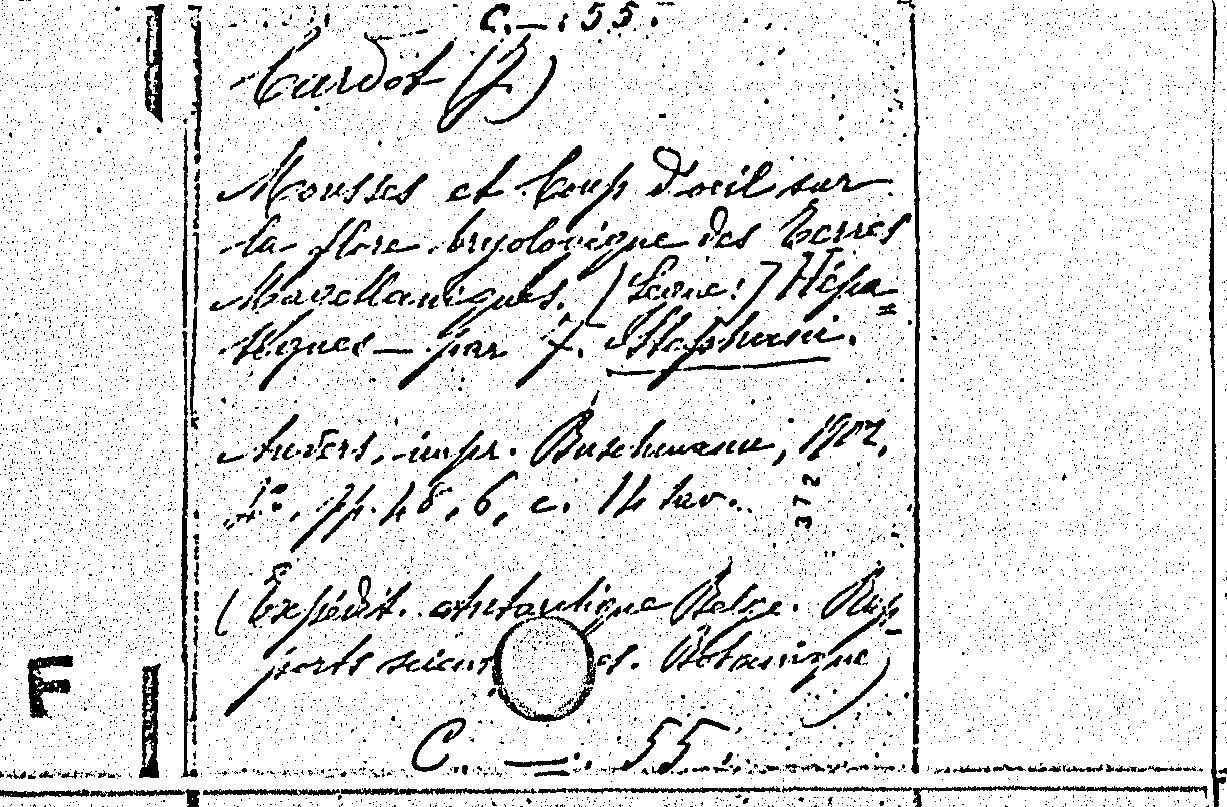 C. — : 55.
Cardot (J.)
Mousses et Coup d'oeil sur
la flore bryologique des Terres
Magellaniques. [Segue:] Hépa=
tiques — par F. Stephani.
Anvers, impr. Buschmann, 1902,
4º. pp. 48, 6, c. 14 tav.
372
(Expédit. antarctique Belge. Rap-
ports scient es. Botanique)
F
C. — : 55.